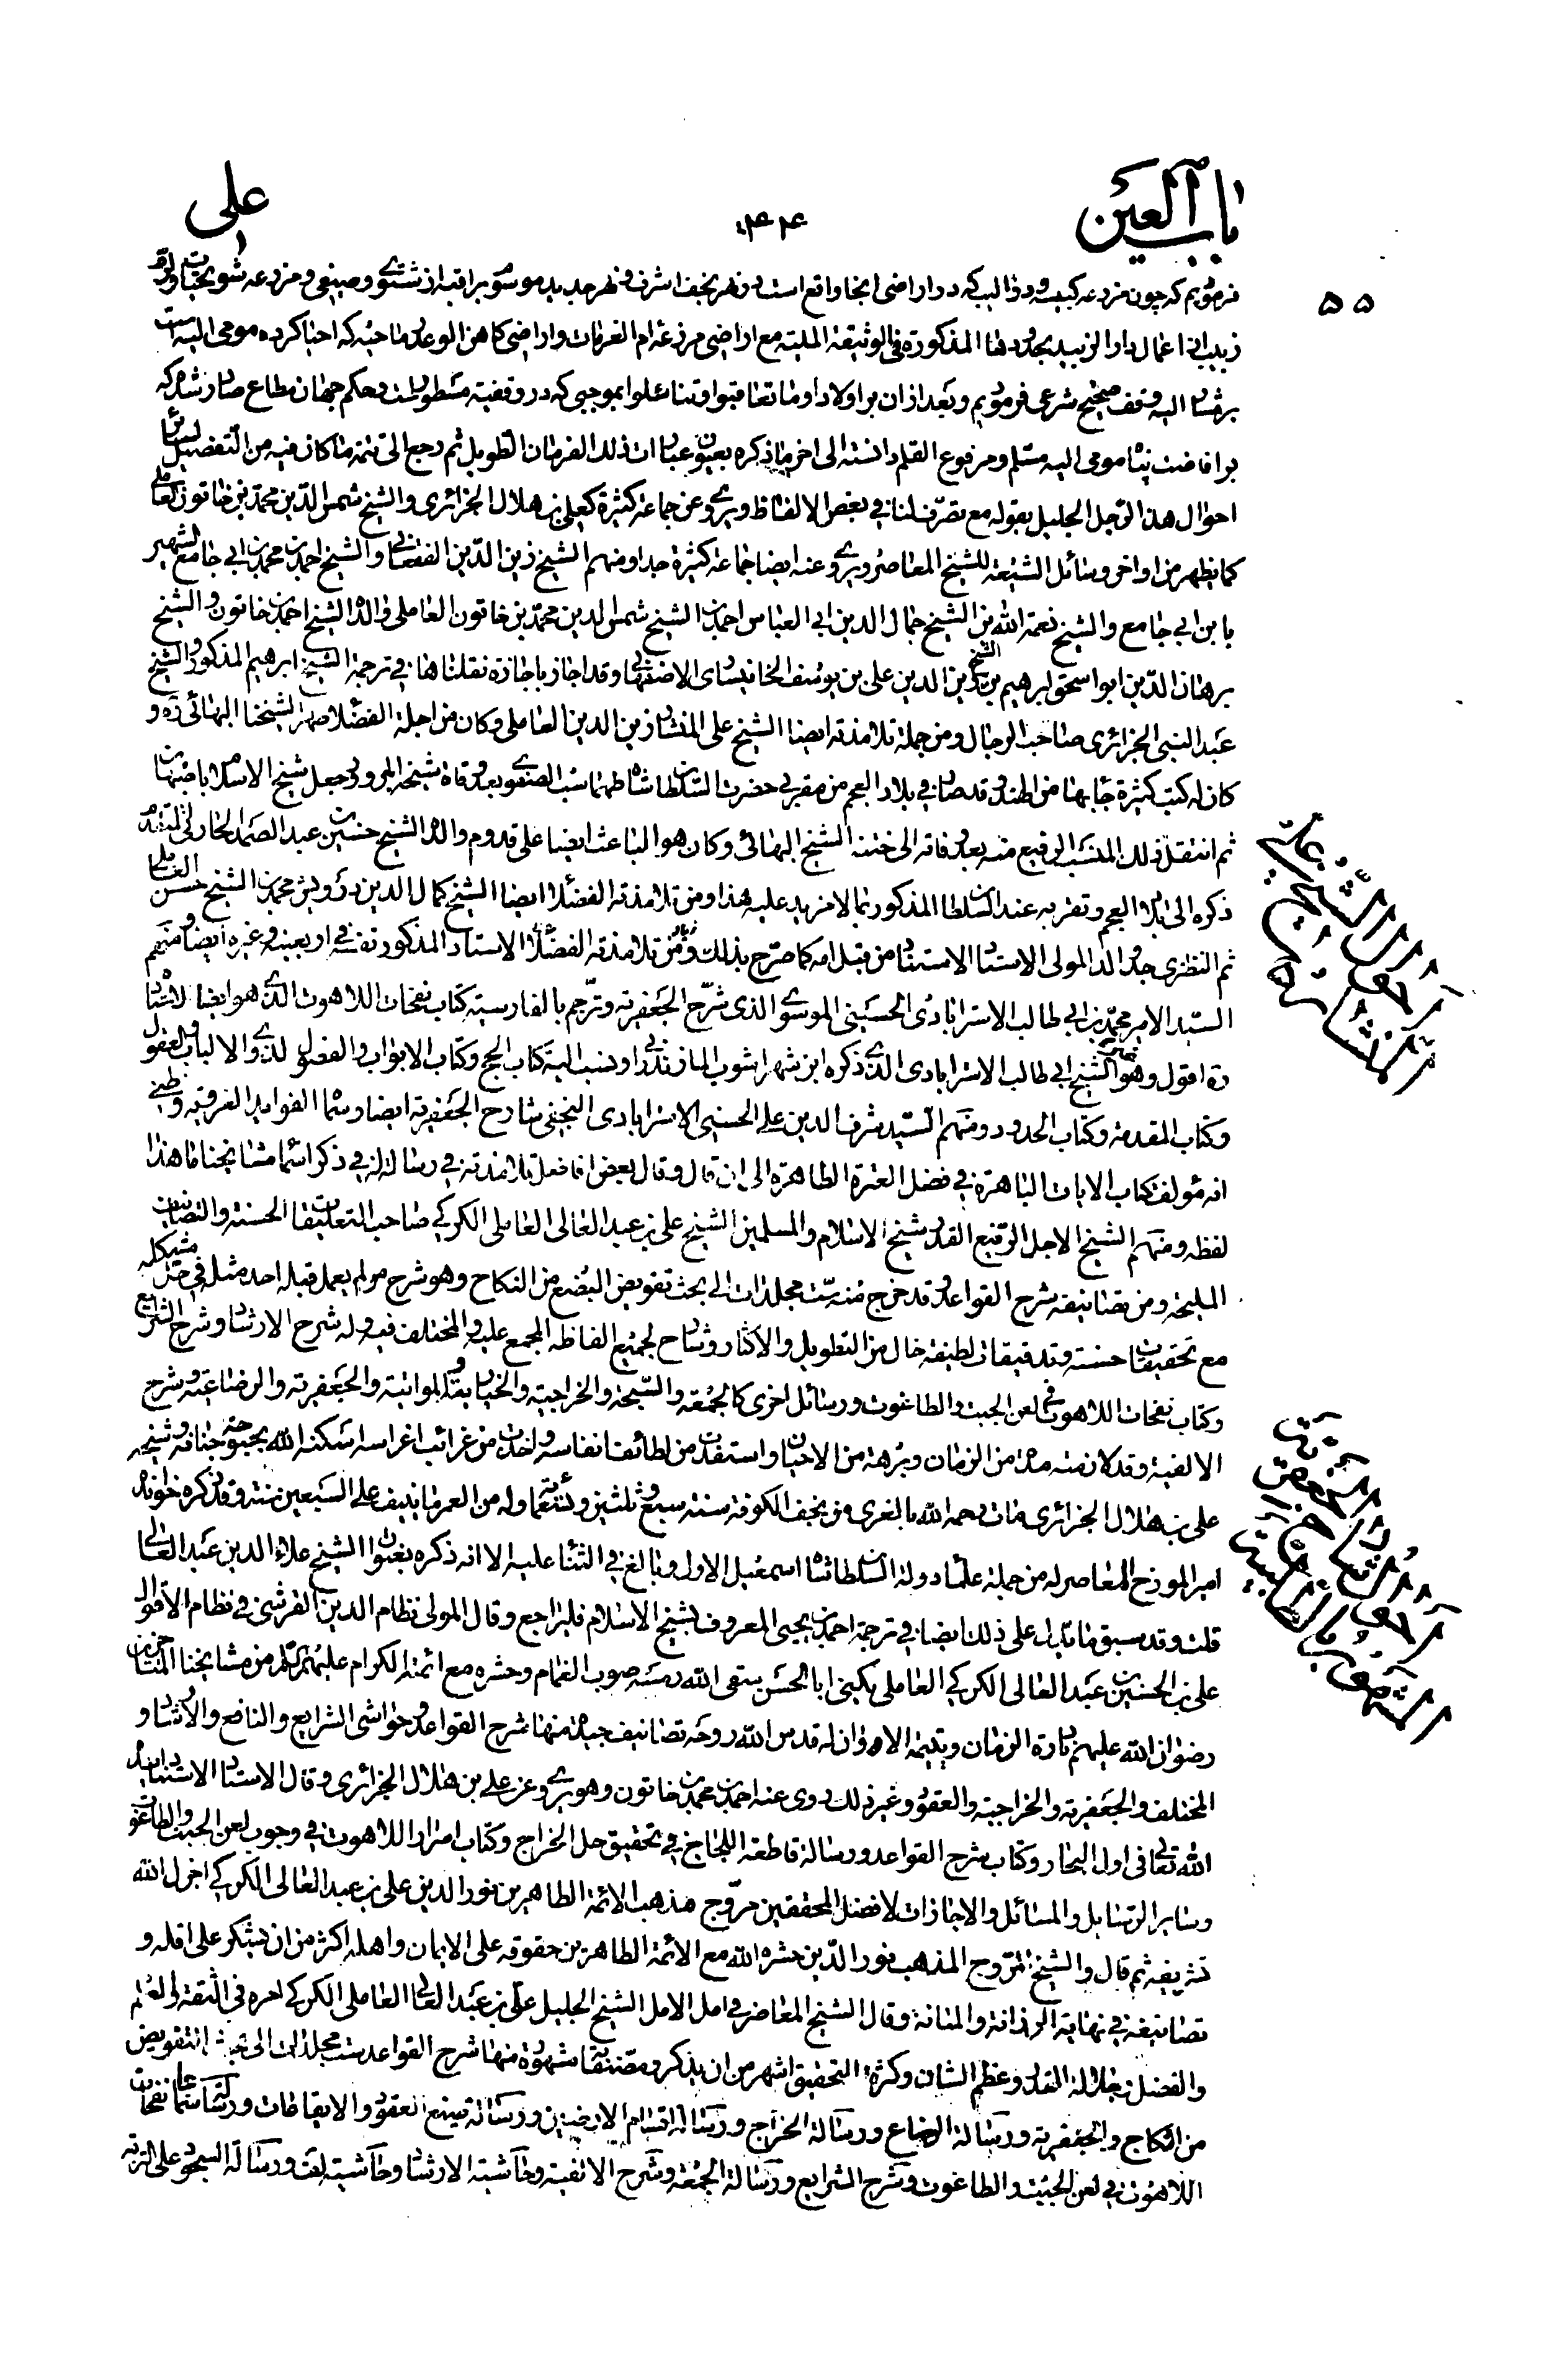 باب العين
علی
۴۰۴
۵۵
فرموديم كه چون مزرعه كبيسه ودواليب كه در اراضی انجا واقع است ونهر نجف اشرف ونهر جديد موسوم براقبه از شتوی وصيفی ومزرعه شويحيات
زبيب از اعمال دار الزبيد بحدودها المذكورة فی الوثيقة الملية مع اراضی مزرعه ام الغرمات واراضی كاهن الوعد صاحبه كه احيا كرده مومی اليه است
برمشار اليه وقف صحيح شرعی فرموديم وبعد از ان بر اولاد او ما تعاقبوا وتناسلوا بموجبی كه در وقفيه مسطور است وحكم جهان مطاع صادر شد كه
بر افاضت پناه مومی اليه مسلم ومرفوع القلم دانسته الى اخر ما ذكره بعيون عبارات ذلك الفرمان الطويل ثم رجع الى تتمة ما كان فيه من التفصيل لسائر
احوال هذا الرجل الجليل بقوله مع تصرف لنا في بعض الالفاظ ويروی عن جماعة كثيرة كعلي بن هلال الجزائری والشيخ شمس الدين محمد بن خاتون العاملی
كما يظهر من اواخر وسائل الشيعة للشيخ المعاصر ويروی عنه ايضا جماعة كثيرة جدا ومنهم الشيخ زين الدين الفقعانی والشيخ احمد بن محمد بن ابي جامع الشهير
بابن ابي جامع والشيخ نعمة الله بن الشيخ جمال الدين ابي العباس احمد بن الشيخ شمس الدين محمد بن خاتون العاملی ووالده الشيخ احمد بن خاتون والشيخ
برهان الدين ابو اسحق ابرهيم بن الشيخ زين الدين علی بن يوسف الخانيساری الاصفهانی وقد اجاز باجازة نقلناها في ترجمة الشيخ ابرهيم المذكور والشيخ
عبد النبی الجزائری صاحب الرجال ومن جملة تلامذته ايضا الشيخ علی المنشار زين الدين العاملی وكان من اجلة الفضلاء صهر الشيخنا البهائی ره و
كان له كتب كثيرة جاء بها من الهند وقد صار في بلاد العجم من مقربی حضرت السلطان شاه طهماسب الصفوی وبعد وفاة شيخه المبرور جعل شيخ الاسلام باصبهان
ثم انتقل ذلك المنصب الرفيع منه بعد وفاته الى ختنه الشيخ البهائی وكان هو الباعث ايضا على قدوم والده الشيخ حسين بن عبد الصمد الحارثی
ذكره الى بلاد العجم وتقربه عند السلطان المذكور بما لا مزيد عليه هذا ومن تلامذته الفضلاء ايضا الشيخ كمال الدين درويش محمد بن الشيخ حسن العاملی
ثم النطنزی جد والد المولى الاستاد الاستناد من قبل امه كما صرح بذلك ومن تلامذته الفضلاء الاستاد المذكور نفسه في اربعينه وغيره ايضا ومنهم
السيد الامير محمد بن ابي طالب الاسترابادی الحسينی الموسوی الذی شرح الجعفرية وترجم بالفارسية كتاب نفحات اللاهوت الذی هو ايضا لاستاده
ره اقول وهو غير الشيخ ابي طالب الاسترابادی الذی ذكره ابن شهراشوب المازندرانی ونسب اليه كتاب الحج وكتاب الابواب والفصول لذوی الالباب والعقول
وكتاب المقدمة وكتاب الحدود ومنهم السيد شرف الدين علی الحسينی الاسترابادی النجفی شارح الجعفرية ايضا وسماه الفوايد الغروية وظنی
انه مؤلف كتاب الايات الباهرة في فضل العترة الطاهرة الى ان قال وقال بعض افاضل تلامذته في رسالة له في ذكر اسماء مشايخنا ما هذا
لفظه ومنهم الشيخ الاجل الرفيع القدر شيخ الاسلام والمسلمين الشيخ علی بن عبد العالی العاملی الكركی صاحب التعليقات الحسنة والتصانيف
المليحة ومن تصانيفه شرح القواعد قد خرج منه ست مجلدات الى بحث تفويض البضع من النكاح وهو شرح لم يعمل قبله احد مثله في حل مشكله
مع تحقيقات حسنة وتدقيقات لطيفة خال من التطويل والاكثار وشارح لجميع الفاظه المجمع عليه والمختلف فيه وله شرح الارشاد وشرح الشرايع
وكتاب نفحات اللاهوت فی لعن الجبت والطاغوت ورسائل اخری كالجمعة والسبحة والخراجية والخيارية والمواتية والجعفرية والرضاعية وشرح
الالفية وقد لازمته مدة من الزمان وبرهة من الاحيان واستفدت من لطائف انفاسه واخذت من غرائب اغراسه اسكنه الله بحبوحة جنانه وشيخه
علی بن هلال الجزائری مات رحمه الله بالغری من نجف الكوفة سنة سبع وثلثين وتسعمائة وله من العمر ما ينيف على السبعين سنة وقد ذكره خواند
امير المورخ المعاصر له من جملة علماء دولة السلطان شاه اسمعيل الاول وبالغ في الثناء عليه الا انه ذكره بعنوان الشيخ علاء الدين عبد العالی
قلت وقد سبق ما يدل على ذلك ايضا في ترجمة احمد بن يحيى المعروف بشيخ الاسلام فليراجع وقال المولى نظام الدين القرشی في نظام الاقوال
علی بن الحسين بن عبد العالی الكركی العاملی يكنى ابا الحسن سقى الله رمسه صوب الغمام وحشره مع ائمته الكرام عليهم السلام من مشايخنا المتاخرين
رضوان الله عليهم نادرة الزمان ويتيمة الاوان له قدس الله روحه تصانيف جيدة منها شرح القواعد وحواشی الشرايع والنافع والارشاد و
المختلف والجعفرية والخراجية والعقود وغير ذلك روی عنه احمد بن محمد بن خاتون وهو يروی عن علی بن هلال الجزائری وقال الاستاد الاستناد ايده
الله تعالى فی اول البحار وكتاب شرح القواعد ورسالة قاطعة اللجاج في تحقيق حل الخراج وكتاب اسرار اللاهوت في وجوب لعن الجبت والطاغوت
وساير الرسايل والمسائل والاجازات لافضل المحققين مروج مذهب الائمة الطاهرين نور الدين علی بن عبد العالی الكركی اجزل الله
تشريفه ثم قال والشيخ المروج المذهب نور الدين حشره الله مع الائمة الطاهرين حقوقه على الايمان واهله اكثر من ان يشكر على اقله و
تصانيفه في نهاية الرزانة والمتانة وقال الشيخ المعاصر في امل الامل الشيخ الجليل علی بن عبد العالی العاملی الكركی امره فی الثقة والعلم
والفضل وجلالة القدر وعظم الشان وكثرة التحقيق اشهر من ان يذكر ومصنفاته مشهورة منها شرح القواعد ست مجلدات الى بحث التفويض
من النكاح والجعفرية ورسالة الرضاع ورسالة الخراج ورسالة اقسام الارضين ورسالة صيغ العقود والايقاعات ورسالة سماها نفحات
اللاهوت في لعن الجبت والطاغوت وشرح الشرايع ورسالة الجمعة وشرح الالفية وحاشية الارشاد وحاشية لف ورسالة السجود على التربة
احوال الشيخ علی
المنشار